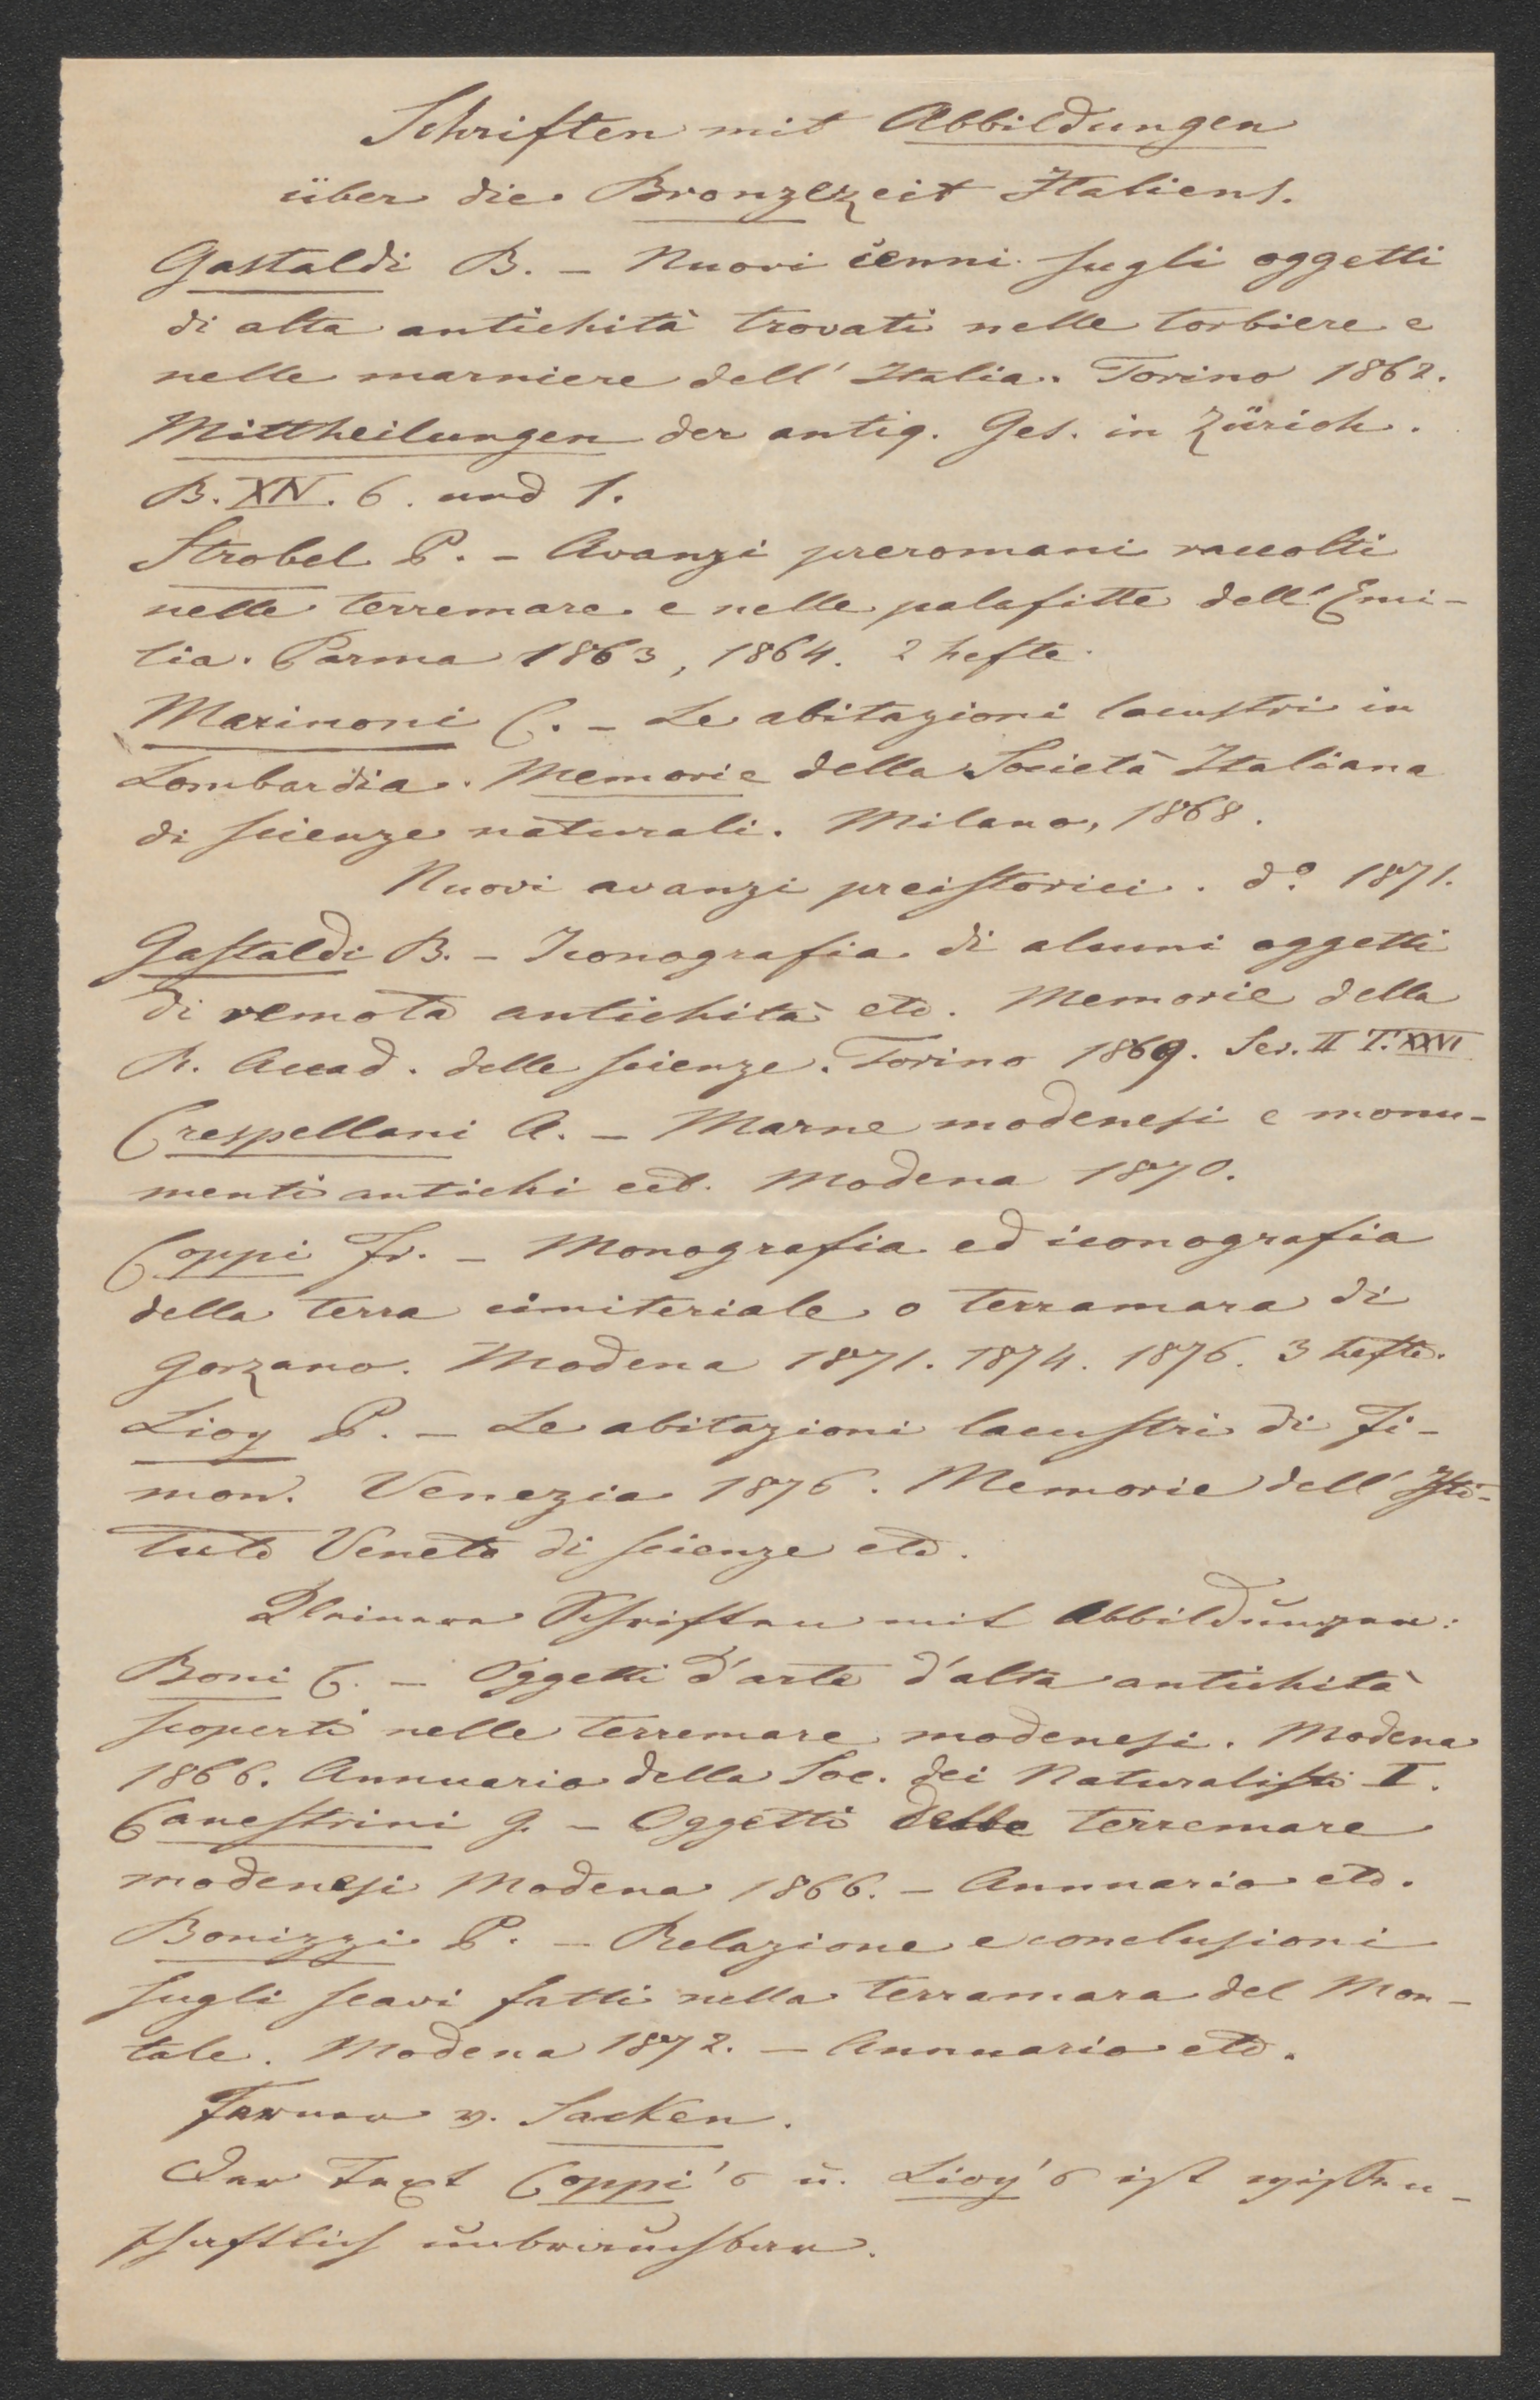 Schriften mit Abbildungen
über die Bronzezeit Italiens.
Gastaldi B. – Nuovi cenni sugli oggetti
di alta antichità trovati nelle torbiere e
nelle marniere dell' Italia. Torino 1862.
Mittheilungen der antiq. Ges. in Zürich.
B. XIV. 6. und 1.
Strobel P. – Avanzi preromani raccolti
nelle terremare e nelle palafitte dell' Emi-
lia. Parma 1863, 1864. 2 hefte.
Marinoni C. – Le abitazioni lacustri in
Lombardia. Memorie della Società Italiana
di scienze naturali. Milano, 1868.
Nuovi avanzi preistorici. do. 1871.
Gastaldi B. – Iconografia di alcuni oggetti
di remota antichità etc. Memorie della
R. Accad. delle scienze. Torino 1869. Ser. II T. XXVI
Crespellani A. – Marne modenesi e monu-
menti antichi ect. Modena 1870.
Coppi Fr. – Monografia ed iconografia
della terra cimiteriale o terramara di
Gorzano. Modena 1871. 1874. 1876. 3 hefte.
Lioy P. – Le abitazioni lacustri di Fi-
mon. Venezia 1876. Memorie dell' Isti-
tuto Veneto di scienze etc.
Kleinere Schriften mit Abbildungen:
Boni C. – Oggetti d'arte d'alta antichità
scoperti nelle terremare modenesi. Modena
1866. Annuario della Soc. dei Naturalisti I.
Canestrini G. – Oggetti delle terremare
modenesi Modena 1866. – Annuario etc.
Bonizzi P. – Relazione e conclusioni
sugli scavi fatti nella terramara del Mon-
tale. Modena 1872. – Annuario etc.
Ferner v. Sacken.
Der Text Coppi's u. Lioy's ist wissen-
schaftlich unbrauchbar.